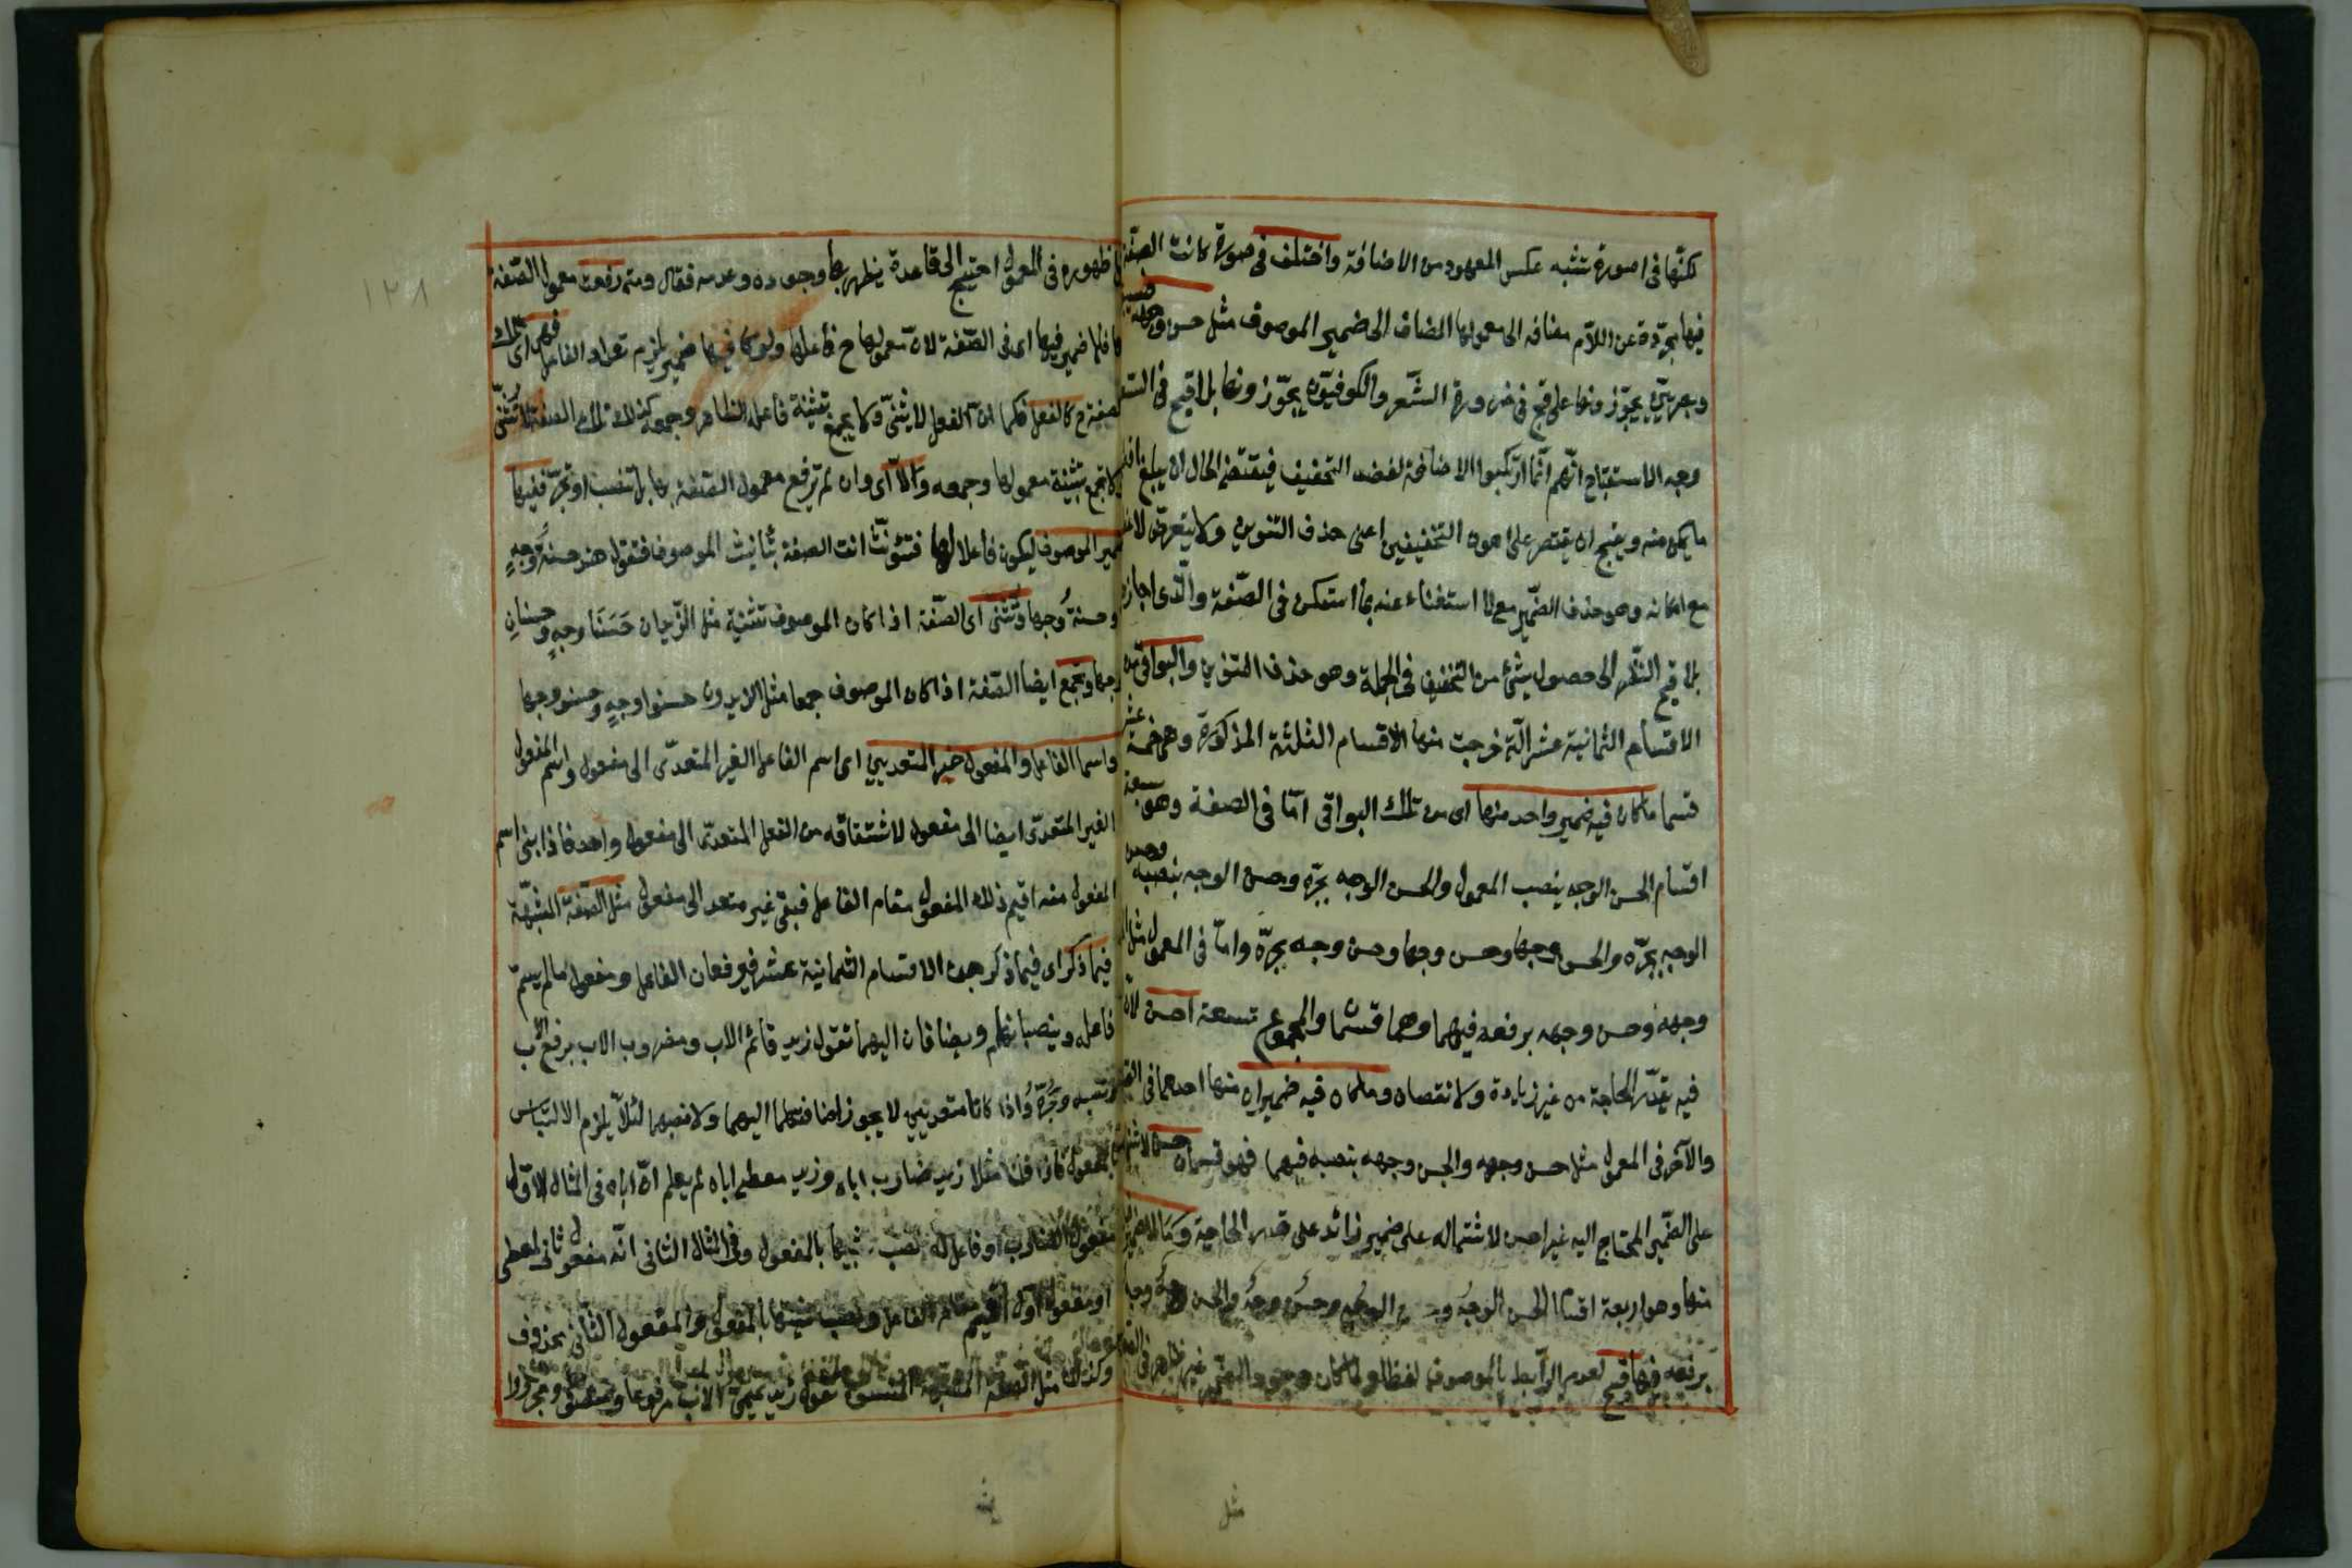 لكنها فى صورة تشبه عكس المعهود من الاضافة واختلف فى صورة كانت الصفة
فيها مجردة عن اللام مضافه الى معمولها المضاف الى ضمير الموصوف مثل حسن وجهه
يجوزونها على قبح فى ضرورة الشعر والكوفيون يجوزونها بلا قبح فى السعة
وجه الاستقباح انهم انما ارتكبوا الاضافة لقصد التخفيف فيقتضى الحال ان يبلغ
ما يمكن منه ويقبح ان يقتصر على اهون التخفيفين اعنى حذف التنوين ولا يتعرض
مع امكانه وهو حذف الضمير مع الاستغناء عنه بما استكن فى الصفة والذى اجازه
بلا قبح النظر الى حصول شئ من التخفيف فى الجملة وهو حذف التنوين والبواقى من
الاقسام الثمانية عشر التى خرجت منها الاقسام الثلثة المذكورة وهى خمسة عشر
قسما ما كان فيه ضمير واحد منها اى من تلك البواقى اما فى الصفة وهو سبعة
اقسام الحسن الوجه بنصب المعمول والحسن الوجه بجره وحسن الوجه بنصبه وحسن
الوجه بجره والحسن وجها وحسن وجها وحسن وجه بجره واما فى المعمول مثل
وجهه وحسن وجهه برفعه فيهما وهما قسمان والمجموع تسعة احسن لان
فيه بقدر الحاجة من غير زيادة ولا نقصان وما كان فيه ضميران منها احدهما فى الصفة
والآخر فى المعمول مثل حسن وجهه والحسن وجهه بنصبه فيهما فهو قسمان حسن
على الضمير المحتاج اليه غير احسن لاشتماله على ضمير زائد على قدر الحاجة وما لا ضمير
منها وهو اربعة اقسام الحسن الوجه وحسن الوجه وحسن وجه والحسن وجه
برفعه فيها قبح لعدم الرابط بالموصوف لفظا ولما كان وجود الضمير غير ظاهر فى
مثل
ظهوره فى المعمول احتيج الى قاعدة يظهر بها وجوده وعدمه فقال ومتى رفعت معمول الصفة
بها فلا ضمير فيها اى فى الصفة لان معمولها ح فاعلها ولو كان فيها ضمير يلزم تعدد الفاعل فهى اى تلك
الصفة ح كالفعل فكما ان الفعل لا يثنى ولا يجمع بتثنية فاعله الظاهر وجمعه كذلك تلك الصفة لا تثنى
ولا تجمع بتثنية معمولها وجمعه والا اى وان لم ترفع معمول الصفة بها بل تنصب او تجر ففيها
ضمير الموصوف ليكون فاعلا لها فتؤنث انت الصفة بتأنيث الموصوف فتقول هند حسنة وجه
وحسنة وجها وتثنى اى الصفة اذا كان الموصوف تثنية مثل الزيدان حسنا وجه وحسنان
وجها وتجمع ايضا الصفة اذا كان الموصوف جمعا مثل الزيدون حسنوا وجه وحسنون وجها
واسما الفاعل والمفعول غير المتعديين اى اسم الفاعل الغير المتعدى الى مفعول واسم المفعول
الغير المتعدى ايضا الى مفعول لاشتقاقه من الفعل المتعدى الى مفعول واحد فاذا بنى اسم
المفعول منه اقيم ذلك المفعول مقام الفاعل فبقى غير متعد الى مفعول مثل الصفة المشبهة
فيما ذكر اى فيما ذكر من الاقسام الثمانية عشر فيرفعان الفاعل ومفعول ما لم يسم
فاعله وينصبانهما ويضافان اليهما تقول زيد قائم الاب ومضروب الاب برفع الاب
ونصبه وجره واذا كانا متعديين لا يجوز اضافتهما اليهما ولا نصبهما لئلا يلزم الالتباس
بالمفعول فاذا قلنا مثلا زيد ضارب اباه وزيد معطى اباه لم يعلم ان اباه فى المثال الاول
مفعول الضارب او فاعل له نصب تشبيها بالمفعول وفى المثال الثانى انه مفعول ثانى لمعطى
او مفعول اول اقيم مقام الفاعل ونصب تشبيها بالمفعول والمفعول الثانى محذوف
وكذلك مثل الصفة المشبهة المنسوب تقول زيد تميمى الاب مرفوعا ومنصوبا ومجرورا
١٢٨